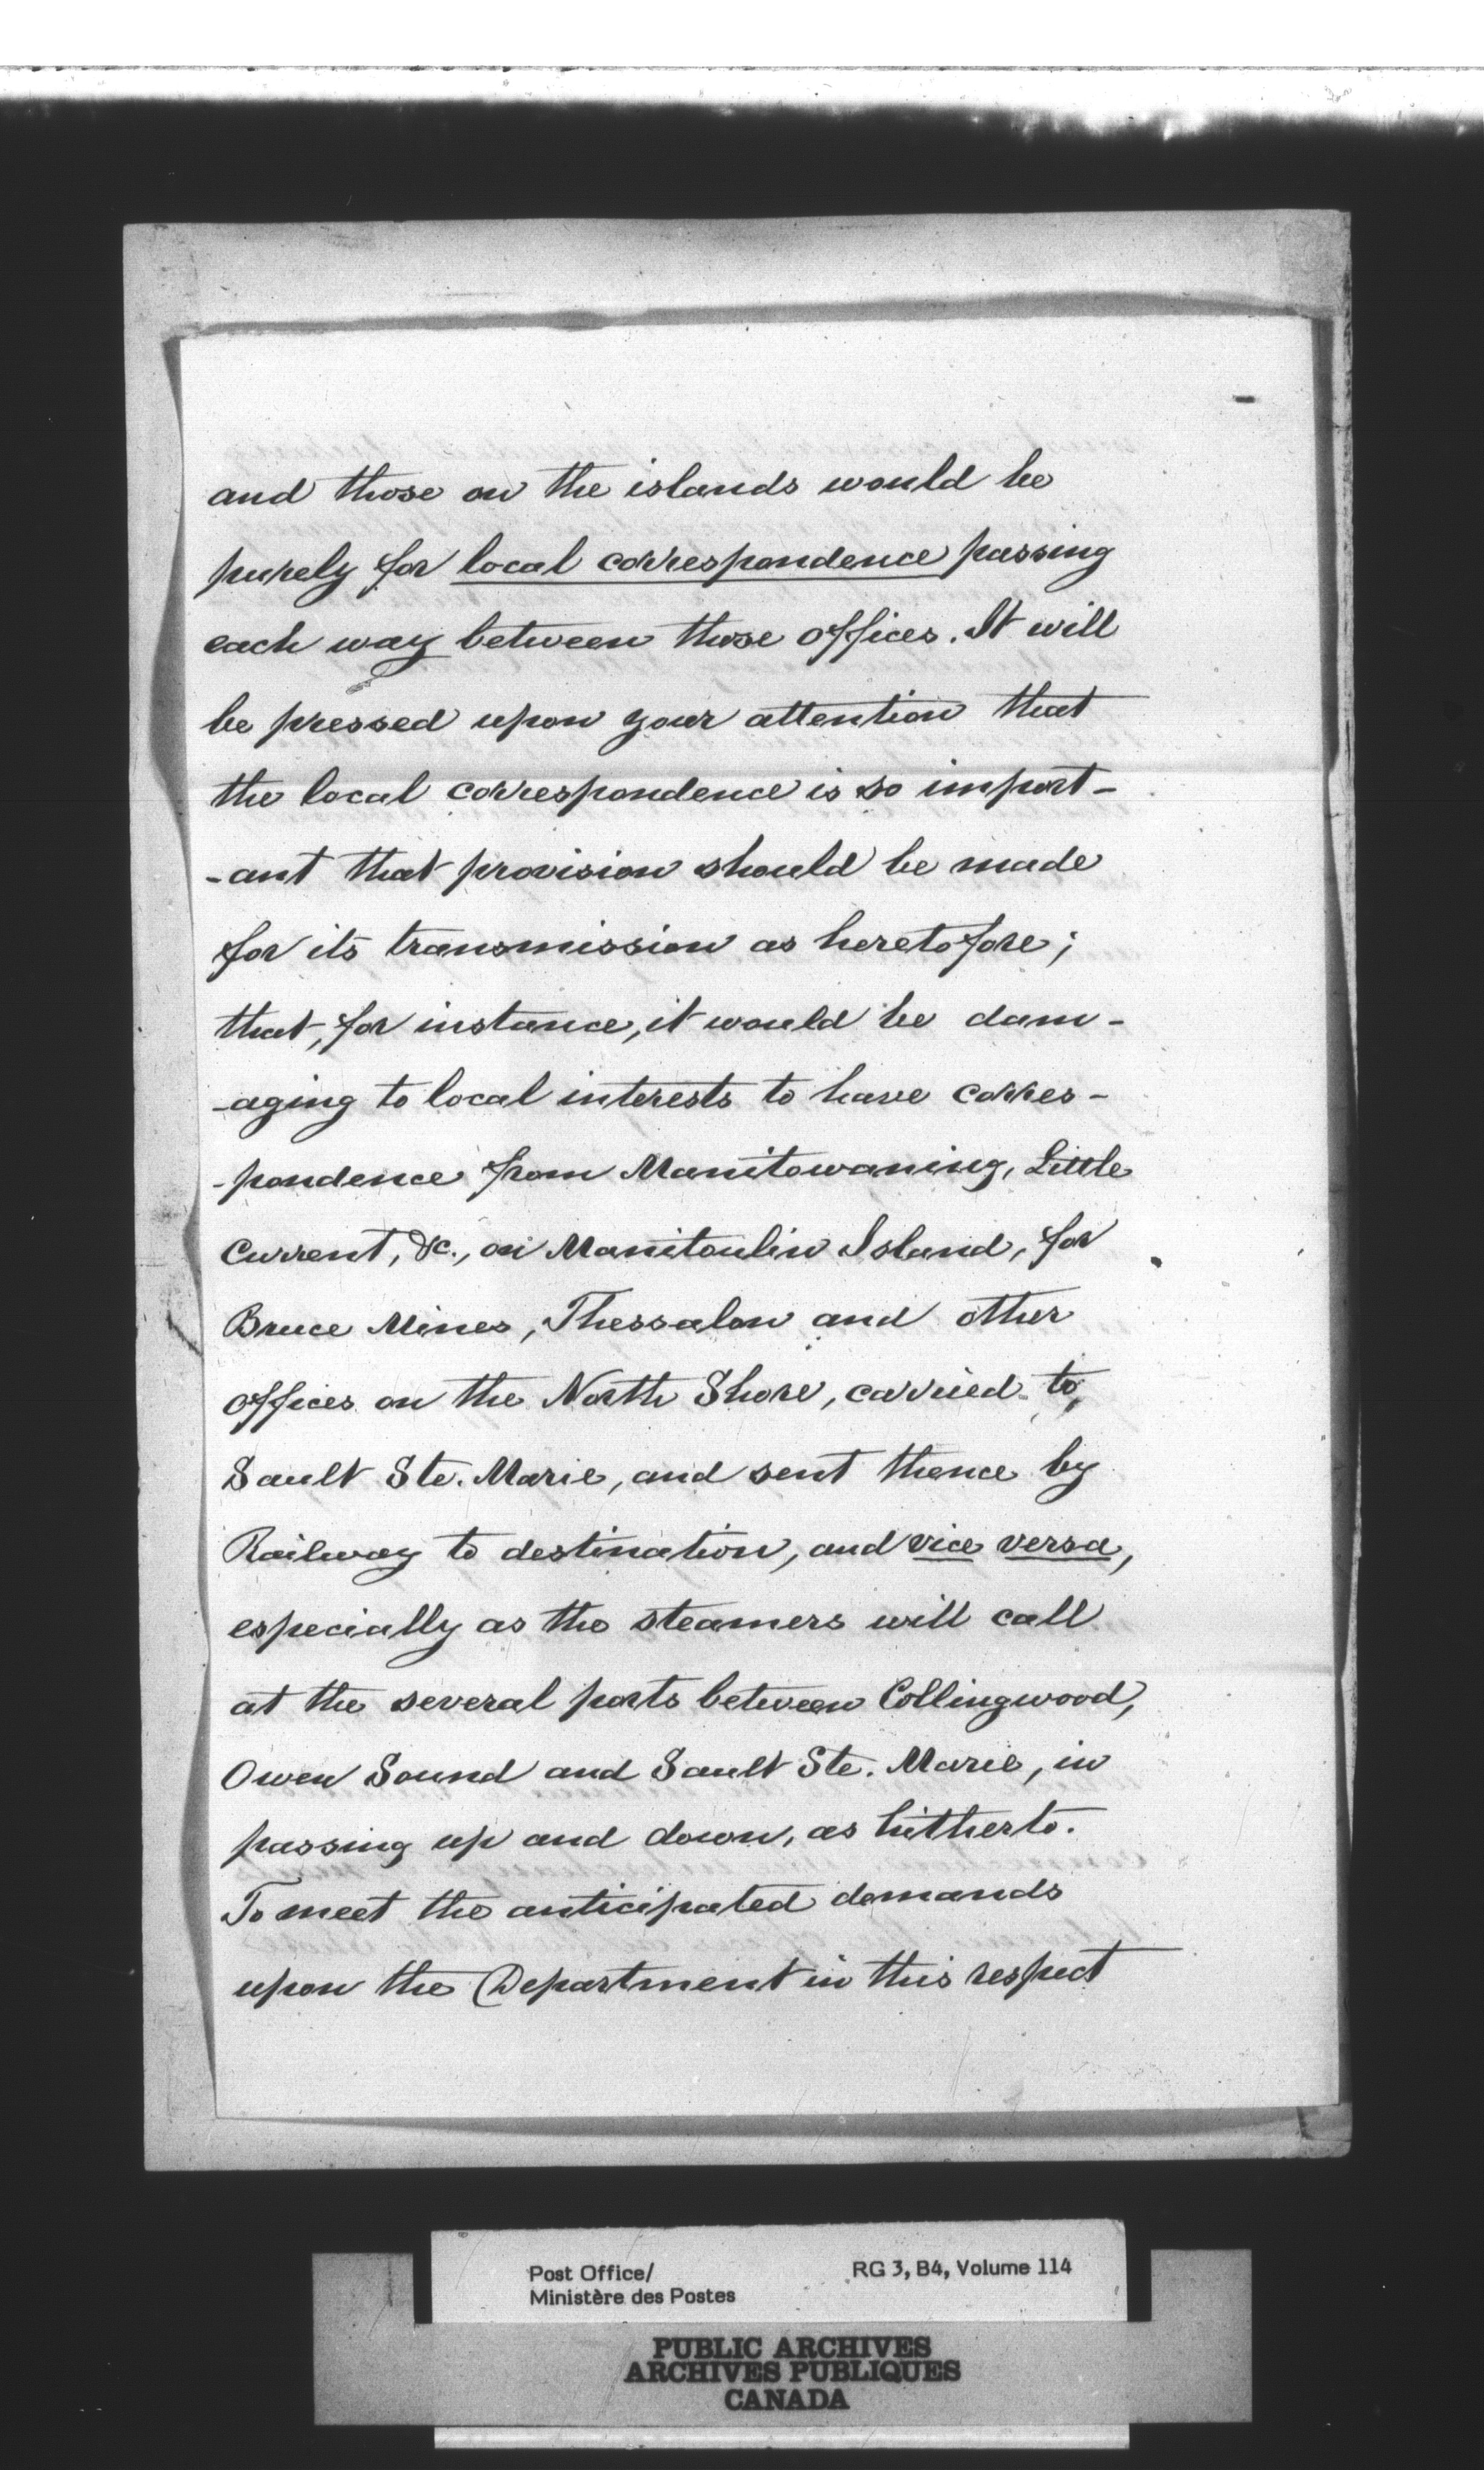 and those on the islands would be
purely for local correspondence passing
each way between those offices. It will
be pressed upon your attention that
the local correspondence is so import-
-ant that provision should be made
for its transmission as heretofore;
that, for instance, it would be dam-
-aging to local interests to have corres-
-pondence from Manitowaning, Little
Current, &c., on Manitoulin Island, for
Bruce Mines, Thessalon and other
offices on the North Shore, carried to
Sault Ste. Marie, and sent thence by
Railway to destination, and vice versa,
especially as the steamers will call
at the several ports between Collingwood,
Owen Sound and Sault Ste. Marie, in
passing up and down, as hitherto.
To meet the anticipated demands
upon the Department in this respect
Post Office/
Ministère des Postes
RG 3, B4, Volume 114
PUBLIC ARCHIVES
ARCHIVES PUBLIQUES
CANADA